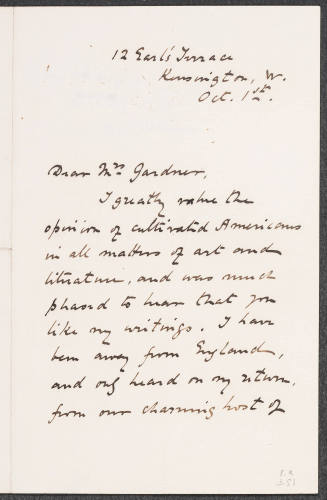 12 Earl's Terrace
Kensington, W.
Oct. 1st.
Dear Mrs Gardner,
I greatly value the
opinion of cultivated Americans
in all matters of art and
literature, and was much
pleased to hear that you
like my writings. I have
been away from England,
and only heard on my return,
from our charming host of